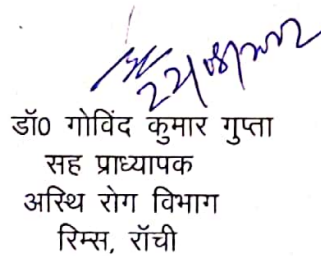 डॉ0 गोविंद कुमार गुप्ता
सह प्राध्यापक
अस्थि रोग विभाग
रिम्स, राँची